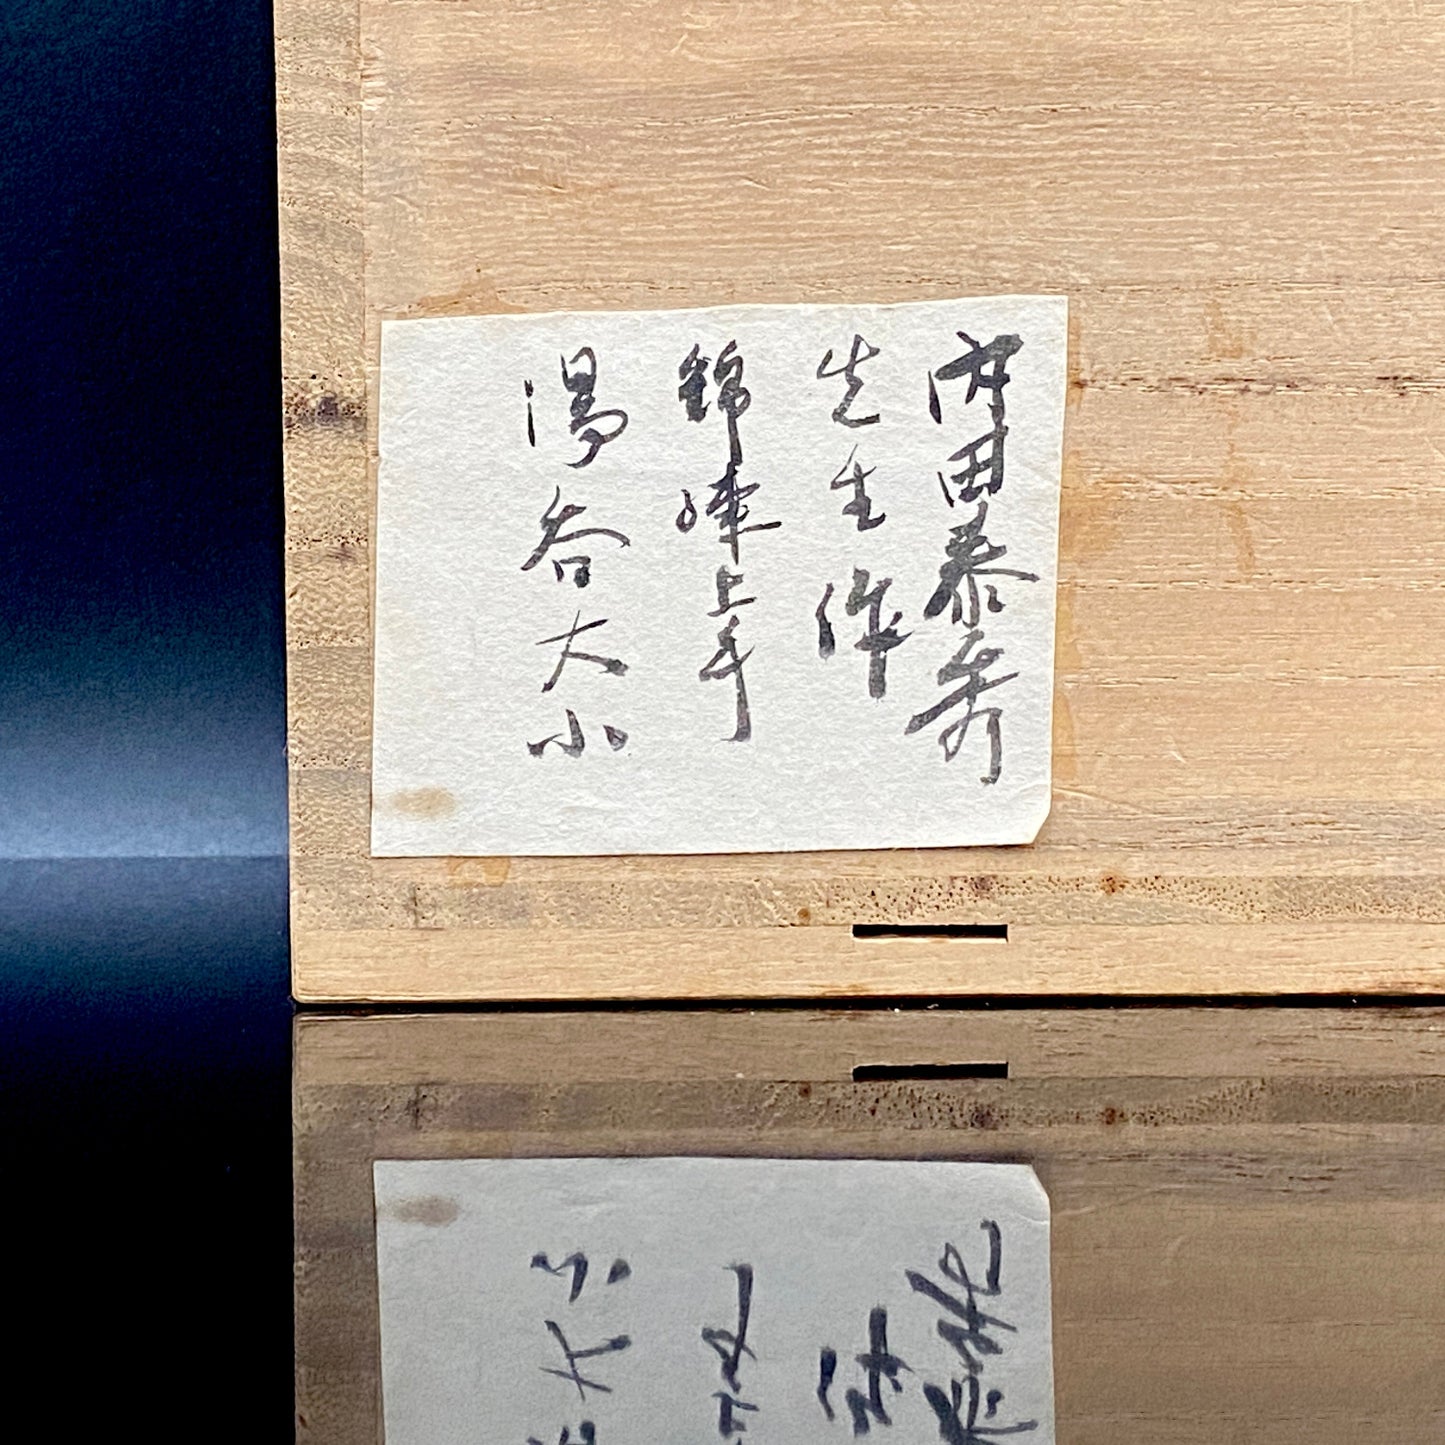 内田泰秀
先生作
錦 上手
湯呑大小